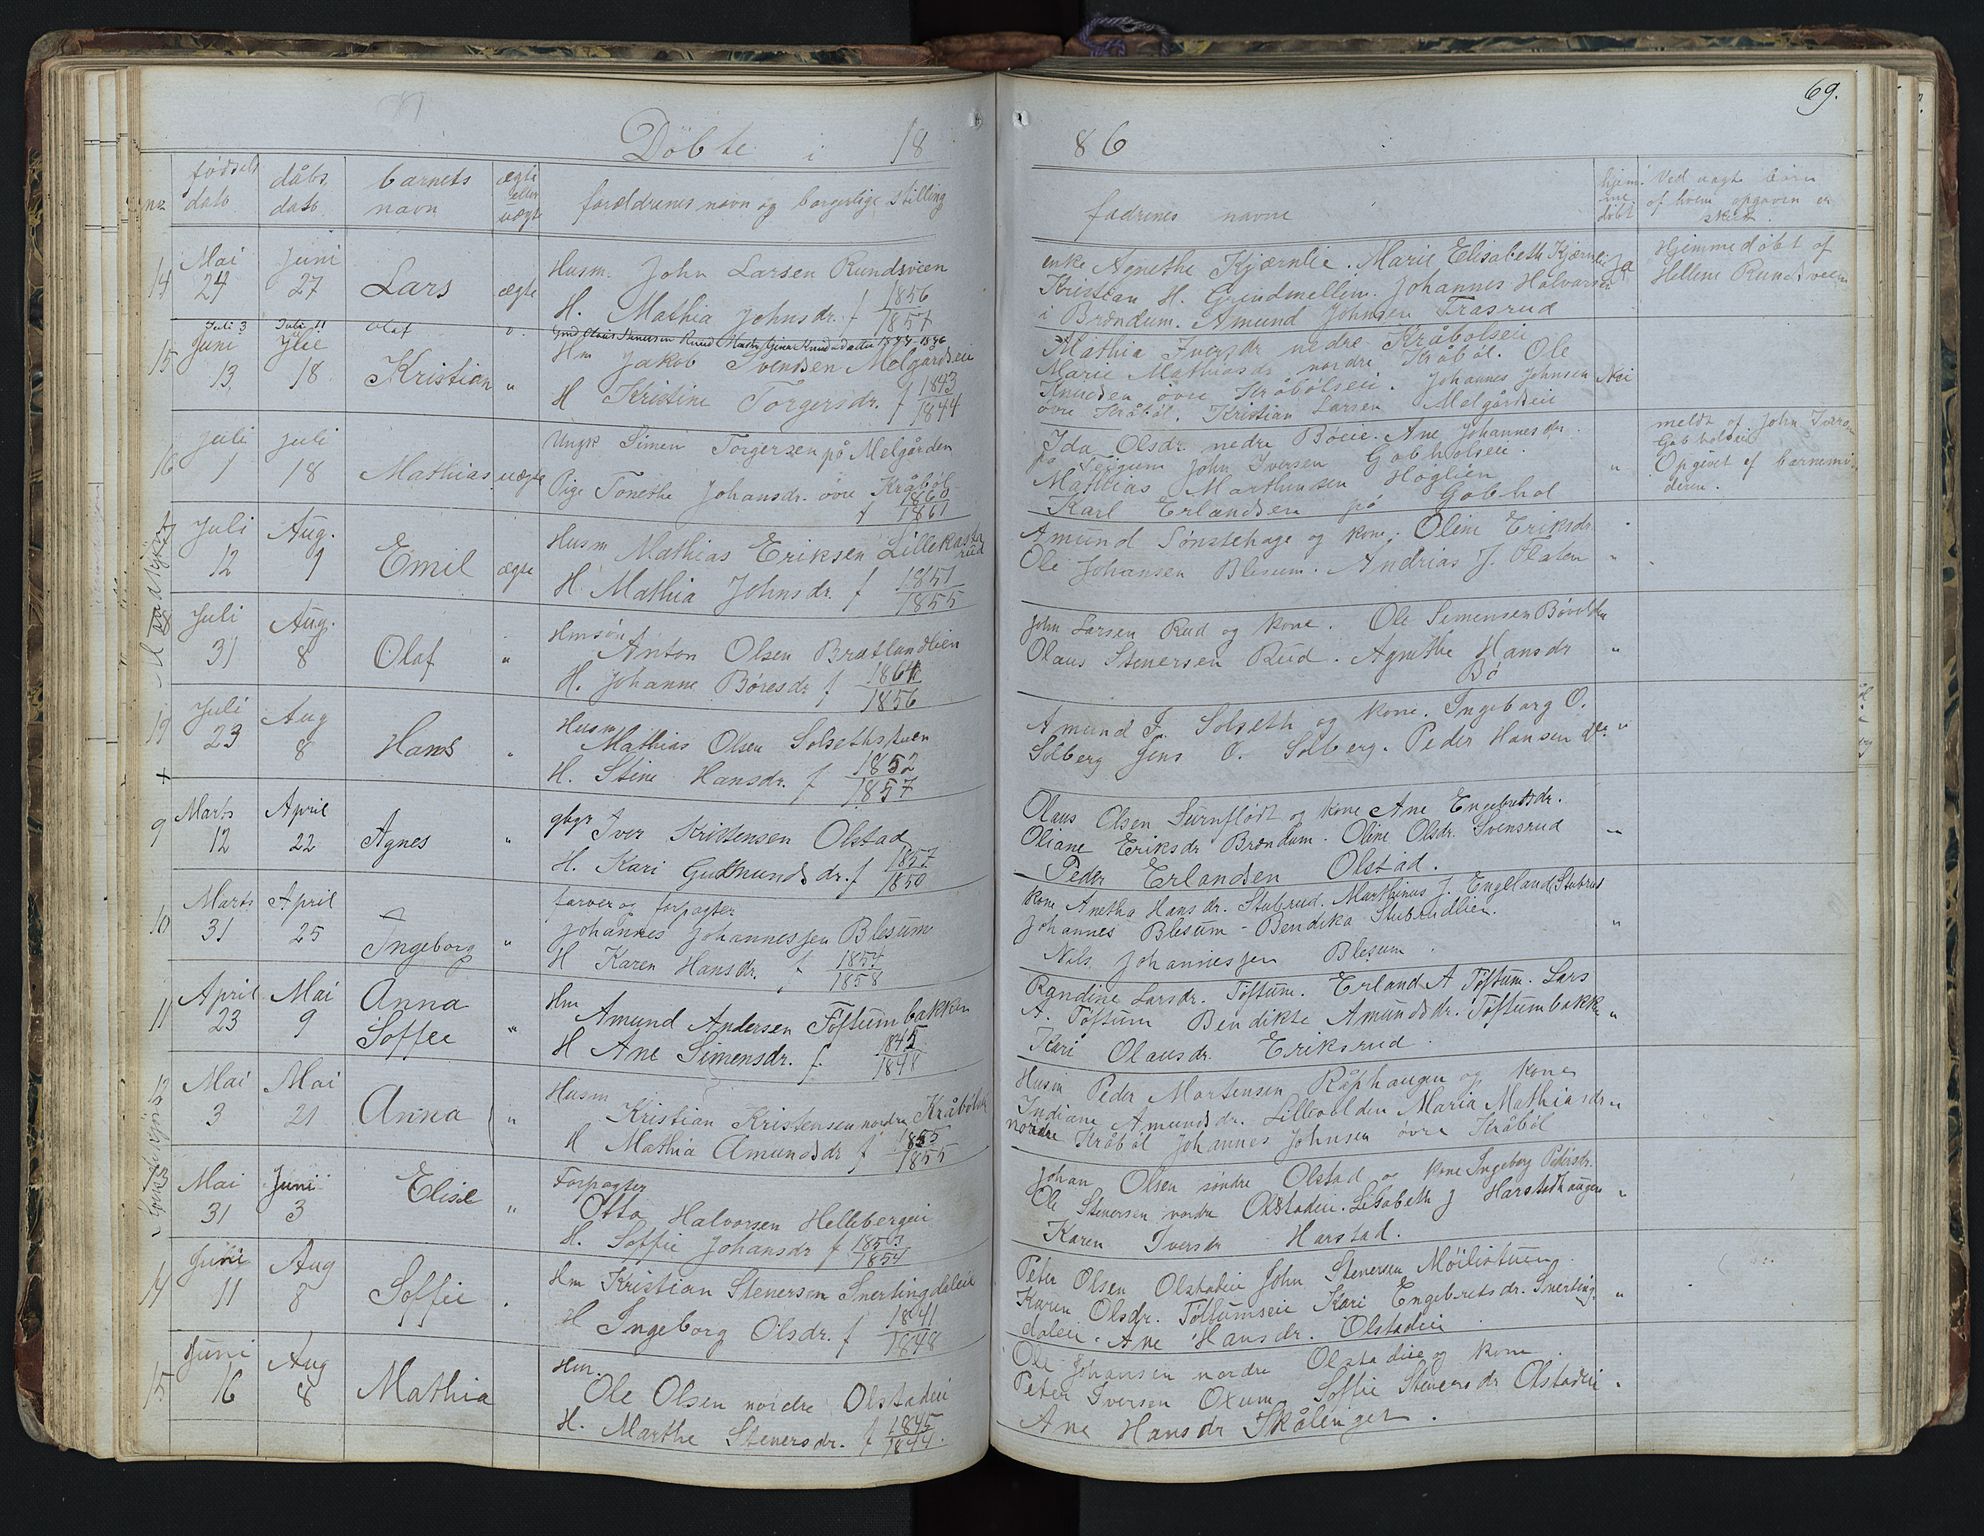 69.
Döbte i 18 86
no. fødsels dato dåbs dato barnets navn ægte eller uægte forældrenes navn og borgerlige stilling fadrenes navne hjem me døbt Ved uægte børn af hvem opgaven er skeet.
14 Mai 24 Juni 27 Lars ægte
Husm. John Larsen Rundsveen
H. Mathia Johnsdr. f 1856 1857
enke Agnethe Kjærnlie. Marie Elisabeth Kjærnli
Kristian H. Grindmellem. Johannes Halvorsen
i Brøndum. Amund Johnsen Trasrud
Ja
Hjemmedøbt af
Hellene Rundsveen
Juli 3 Juli 11 Olaf
15 Juni 13 Jlie 18 Kristian "
Hm Jakob Svendsen Melgårdseie
H Kristine Torgersdr. f 1843 1844
Mathia Iversdr nedre Kråbølseie
Marie Mathiasdr nordre Kråbøl. Ole
Knudsen övre Kråbölseie. Johannes Johnsen
övre Kråböl. Kristian Larsen Melgårdseie
Nei
16 Juli 1 Juli 18 Mathias uægte
Ungk Simen Torgersen på Melgården
Pige Tonethe Johansdr. övre Kråböl
f 1860 1861
Ida Olsdr. nedre Böeie. Ane Johannesdr.
John Iversen Gobholseie.
Mathias Marthinsen Höglien
Karl Erlandsen på Gobhol
"
meldt af John Iversen
Gobholseie
Opgivet af barnemo
deren.
17 Juli 12 Aug. 1 Emil ægte
Husm Mathias Eriksen Lillekasta
rud
H. Mathia Johnsdr. f 1851 1855
Amund Sönstehage og kone. Oline Eriksdr.
Ole Johansen Blesum. Andrias J. Flaten "
18 Juli 31 Aug. 8 Olaf "
Hmsøn
Anton Olsen Brætlandlien
H. Johanne Børesdr f 1864 1856
John Larsen Rud og kone. Ole Simensen Bövolden
Olaus Stenersen Rud. Agnethe Hansdr "
Bö
19 Juli 23 Aug 8 Hans "
Husm
Mathias Olsen Solsethstuen
H. Stine Hansdr. f 1852 1857
Amund F. Solseth og kone. Ingeborg O.
Solberg Jens O. Solberg. Peder Hansen "
9 Marts 12 April 22 Agnes "
gbgr Iver Kristensen Olstad
H. Kari Gudmundsdr. f 1857 1850
Olaus Olsen Surnflödt og kone Ane Engebretsdr.
Oliane Eriksdr Brøndum. Oline Olsdr. Svensrud "
Peder Erlandsen Olstad.
10 Marts 31 April 25 Ingeborg "
farver og forpagter
Johannes Johannessen Blesum
H Karen Hansdr. f 1854 1858
kone Anetha Hansdr. Stubrud. Marthinus J. Engeland Stubrud
Johannes Blesum - Bendika Stubrudlien. "
Nils Johannessen Blesum.
11 April 23 Mai 9 Anna Soffie "
Hm
Amund Andersen Töftumbakken
H Ane Simensdr. f. 1845 1848
Randine Larsdr. Töftum. Erland A Töftum. Lars
A. Töftum Bendikte Amundsdr. Töftumbakken "
Kari Olausdr. Eriksrud.
12 Mai 3 Mai 21 Anna "
Husm
Kristian Kristensen nordre Kråbölseie
H Mathia Amundsdr f 1855 1855
Husm Peder Mortensen Råphaugen og kone
Indiane Amundsdr. Lillevolden Maria Mathiasdr "
nordre Kråböl Johannes Johnsen övre Kråböl
13 Mai 31 Juni 3 Elise "
Forpagter
Otto Halvorsen Hellebergeie
H. Soffie Johansdr f 1853 1854
Johan Olsen søndre Olstad og kone Ingeborg Pedersdr.
Ole Stenersen nordre Olstadeie. Lisabeth J Harstadhaugen "
Karen Iversdr Harstad.
14 Juni 11 Aug 8 Soffie "
Hm Kristian Stenersen Snerlingdaleie
H Ingeborg Olsdr. f 1841 1848
Peter Olsen Olstadeie John Stenersen Möilistuen
Karen Olsdr. Töftumseie Kari Engebretsdr. Snerling "
daleie. Ane Hansdr. Olstadeie
15 Juni 16 Aug 8 Mathia
Hm.
Ole Olsen nordre Olstadeie
H. Marthe Stenersdr. f 1845 1844.
Ole Johansen nordre Olstadeie og kone.
Peter Iversen Oxum Soffie Stenersdr Olstadeie "
Ane Hansdr Skålenget.